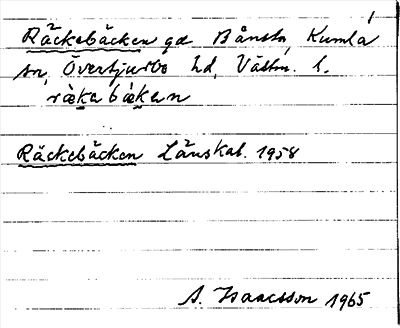 1
Räckebäcken gd Bånsta, Kumla
sn, Övertjurbo hd, Västm. l.
räkabäkan
Räckebäcken Länskal. 1958
A. Isaacsson 1965